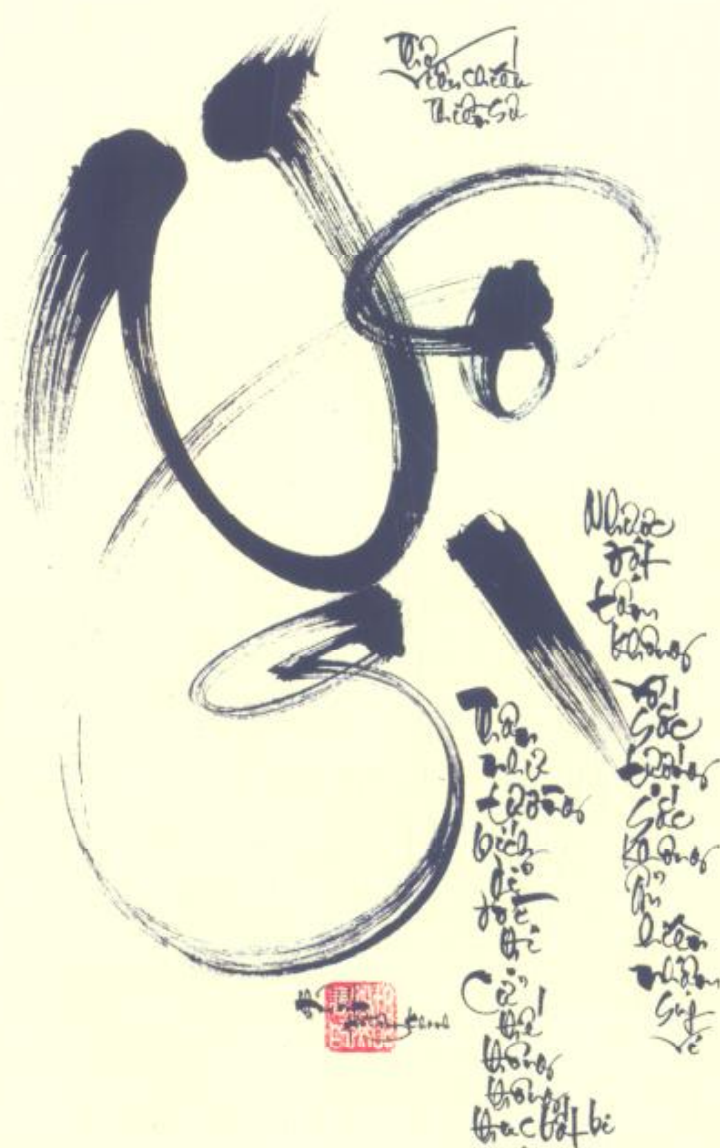 Thơ
Viên Chiếu
Thiền Sư
Thân
như
tường
bích
dĩ
đồi
thì
Cử
thế
thông
thông
thục bất bi
Nhược
đạt
tâm
không
vô
sắc
tướng
Sắc
không
ẩn
hiển
nhậm
suy
vi